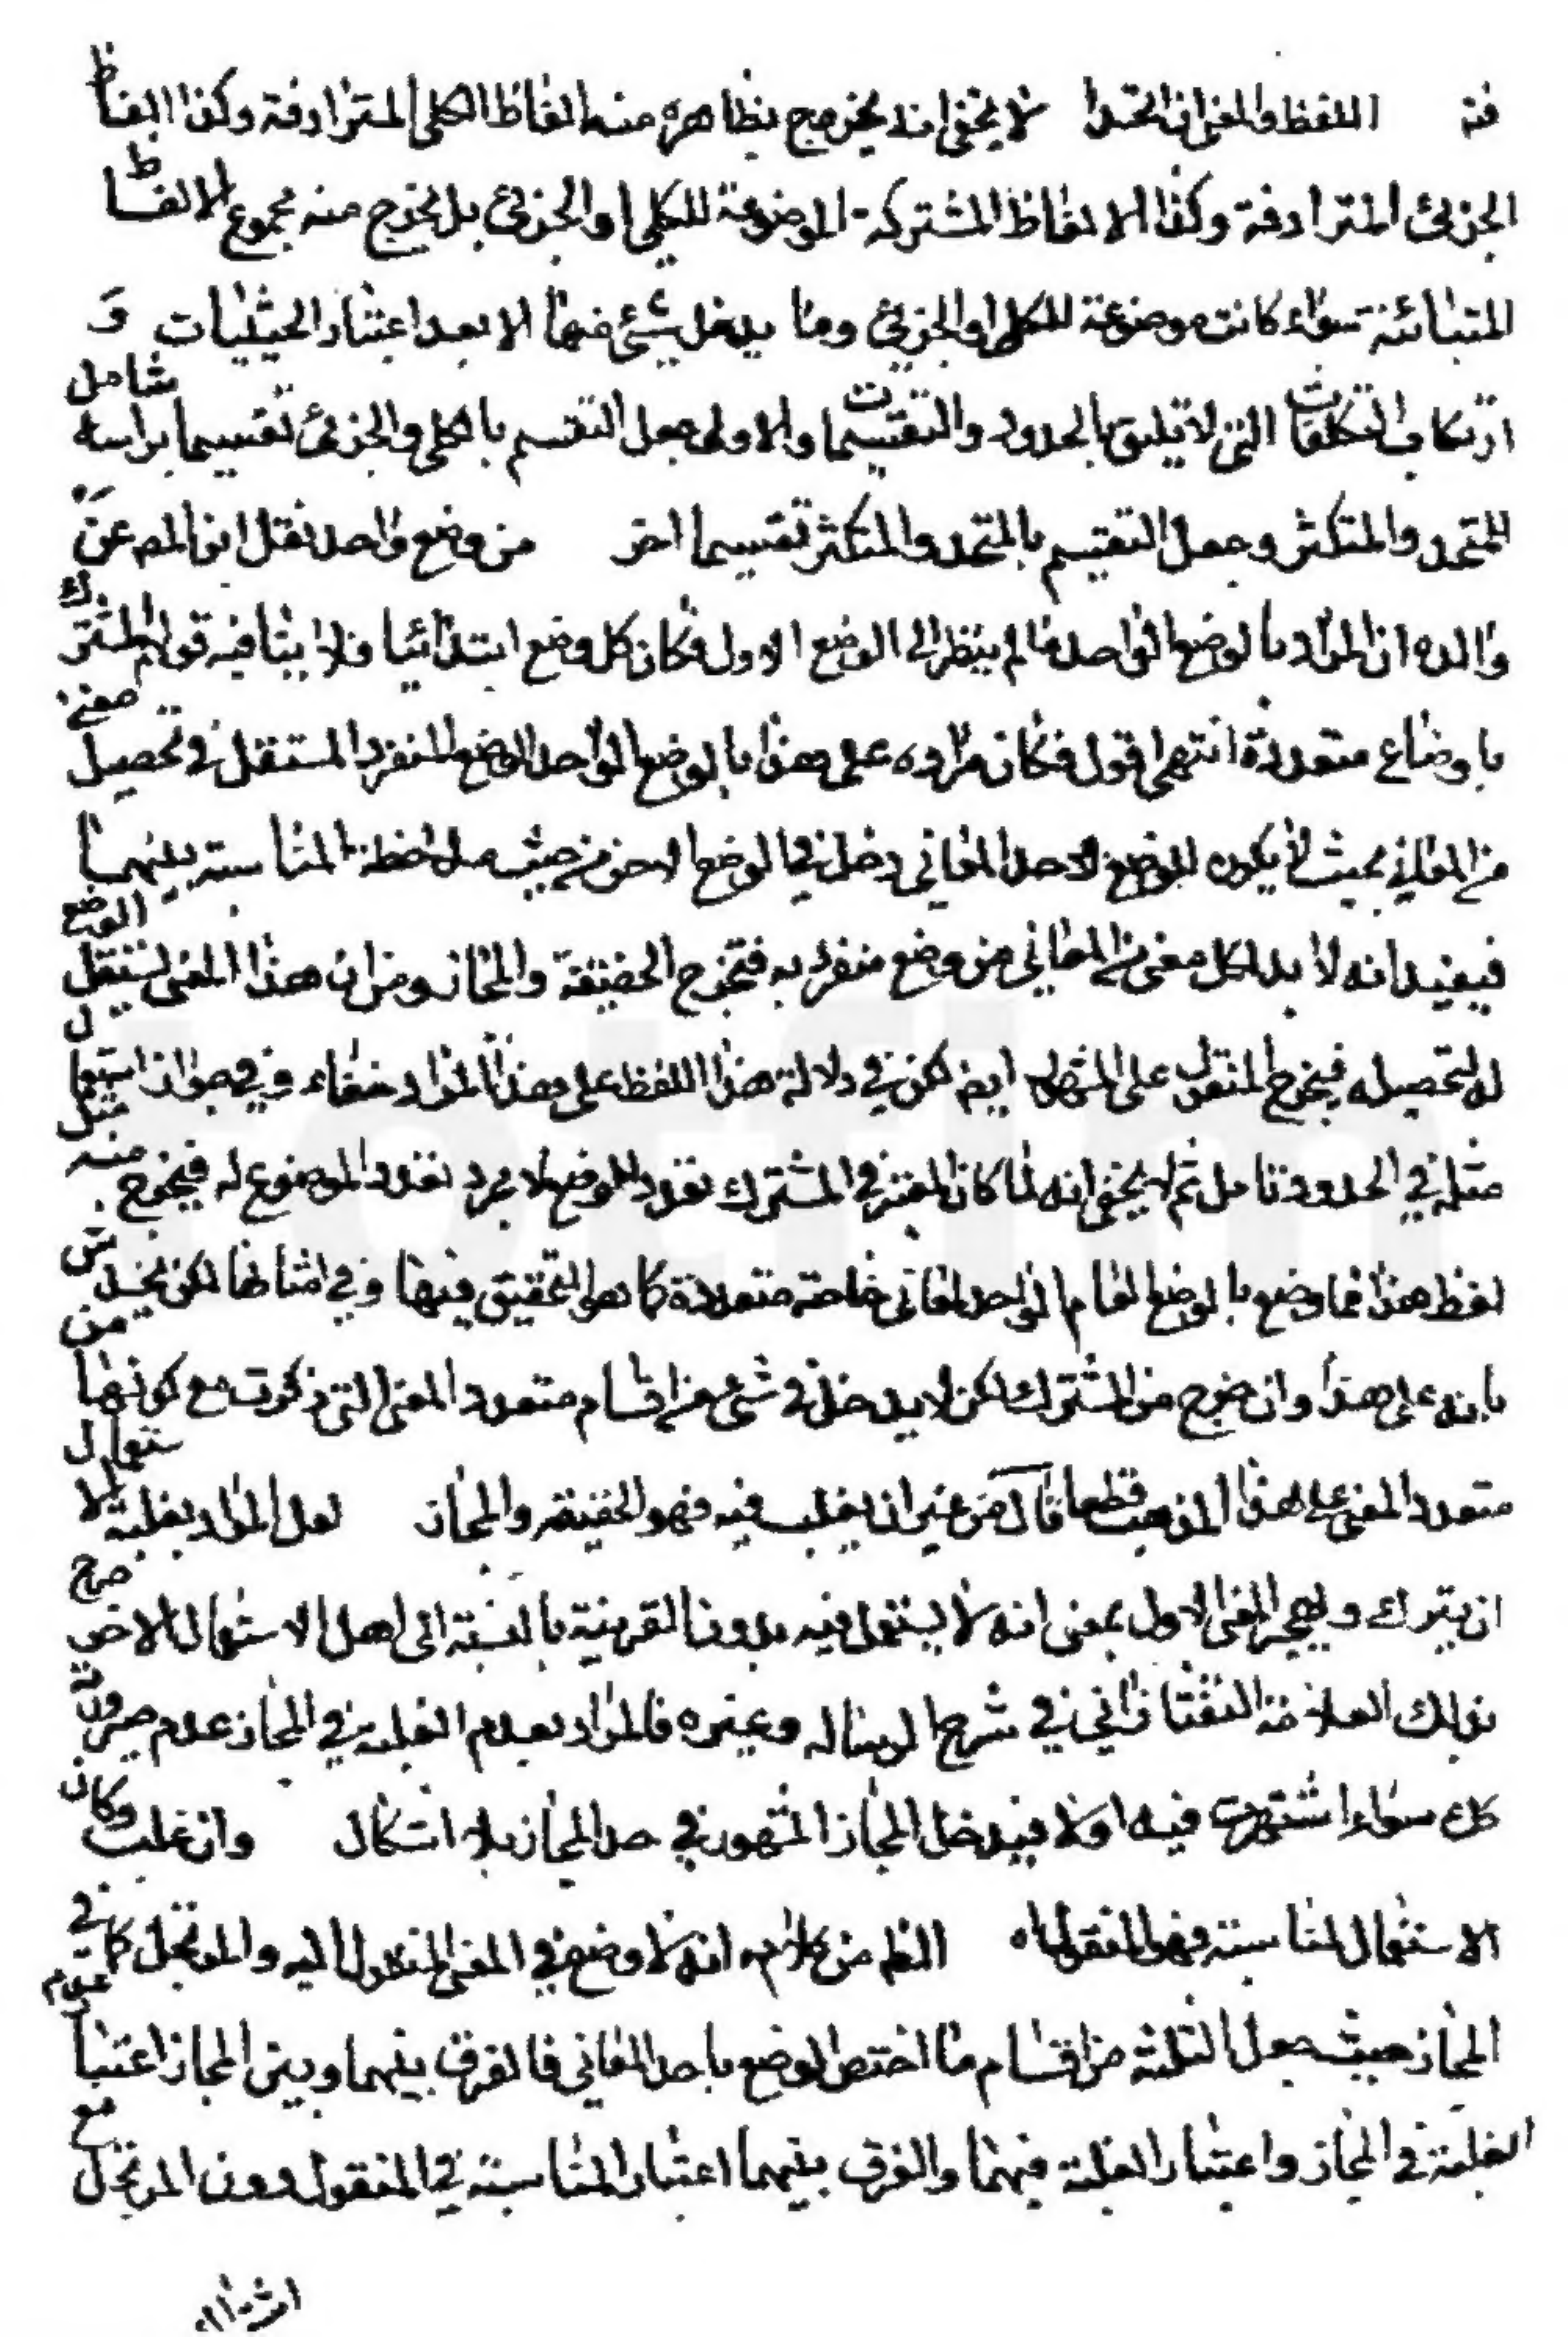 فة اللفظ والمعنى ان اتحدا لا يخفى انه يخرج بظاهره منه الفاظ الكلى المترادفة وكذا الفاظ
الجزئى المترادفة وكذا الالفاظ المشتركة الموضوعة للكلى او الجزئى بل يخرج منه مجموع الالفاظ
المتباينة سواء كانت موضوعة للكلى او الجزئى وما يدخل شىء منها الا بعد اعتبار الحيثيات و
ارتكاب التكلفات التى لا تليق بالحدود والتقسيمات والاولى جعل التقسيم بالكلى والجزئى تقسيما براسه شامل
للمتحد والمتكثر وجعل التقسيم بالمتحد والمتكثر تقسيما اخر من وضع واحد نقل ابن المص عن
والده ان المراد بالوضع الواحد ما لم ينظر الى الوضع الاول فكان كل وضع ابتدائيا فلا ينافيه قولهم المشترك
باوضاع متعددة انتهى اقول فكان مراده على هذا بالوضع الواحد الوضع المنفرد المستقل فى تحصيل معنى
من المعانى بحيث لا يكون للوضع لاحد المعانى دخل فى الوضع الاخر من حيث ملاحظة المناسبة بينهما
فيفيد انه لا بد لكل معنى من المعانى من وضع منفرد به فتخرج الحقيقة والمجاز ومن ان هذا المعنى يستقل الوضع
له لتحصيله فيخرج المنقول على المشهور ايض لكن فى دلالة هذا اللفظ على هذا المراد خفاء وفى جواز استعمال
مثله فى الحدود تامل ثم لا يخفى انه لما كان المعتبر فى المشترك تعدد الوضع لا مجرد تعدد الموضوع له فيخرج منه مثل
لفظ هذا مما وضع بالوضع العام الواحد لمعانى خاصة متعددة كما هو التحقيق فيها وفى امثالها لكن يخدش
بانه على هذا وان خرج من المشترك لكن لا يدخل فى شىء من اقسام متعدد المعنى التى ذكرت مع كونها من
متعدد المعنى على هذا المذهب قطعا قال من غير ان يغلب فيه فهو الحقيقة والمجاز لعل المراد بغلبة الاستعمال
ان يترك ويهجر المعنى الاول بمعنى انه لا يستعمل فيه بدون القرينة بالنسبة الى اهل الاستعمال الاخر صرح
بذلك العلامة التفتازانى فى شرح الرسالة وغيره فالمراد بعدم الغلبة فى المجاز عدم صيرورته
كك سواء اشتهرت فيه او لا فيدخل المجاز المشهور فى حد المجاز بلا اشكال وان غلب وكان
الاستعمال لمناسبة فهو المنقول اه الظ من كلامه انه لا وضع فى المعنى المنقول اليه والمرتجل كما فى
المجاز حيث جعل الثلثة من اقسام ما اختص الوضع باحد المعانى فالفرق بينهما وبين المجاز اعتبار عدم
الغلبة فى المجاز واعتبار الغلبة فيهما والفرق بينهما اعتبار المناسبة فى المنقول دون المرتجل مع